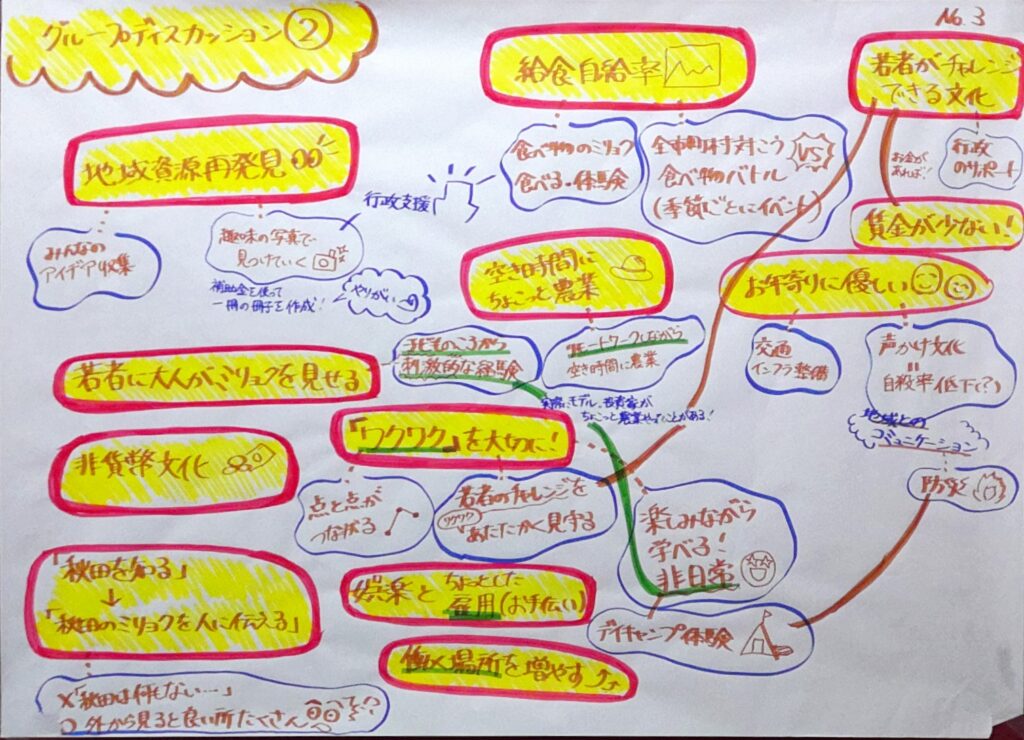 グループディスカッション②
No.3
給食自給率
食べ物のミリョク
食べる・体験
全市町村対こう
食べ物バトル
(季節ごとにイベント)
VS
若者がチャレンジ
できる文化
行政
のサポート
お金が
あれば!
賃金が少ない!
地域資源再発見
みんなの
アイデア収集
趣味の写真で
見つけていく
行政支援
補助金を使って
一冊の冊子を作成!
やりがい
空き時間に
ちょこっと農業
リモートワークしながら
空き時間に農業
実際にモデル、若者家が
ちょこっと農業やったことがある!
お年寄りに優しい
交通
インフラ整備
声かけ文化
自殺率低下(?)
地域との
コミュニケーション
防災
若者に大人がミリョクを見せる
刺激的な経験
「ワクワク」を大切に!
点と点が
つながる
若者のチャレンジを
ワクワク
あたたかく見守る
楽しみながら
学べる!
非日常
デイキャンプ体験
非貨幣文化
「秋田を知る」
↓
「秋田のミリョクを人に伝える」
×「秋田は何もない…」
○外から見ると良い所たくさん
娯楽とちょっとした
雇用(お手伝い)
働く場所を増やす